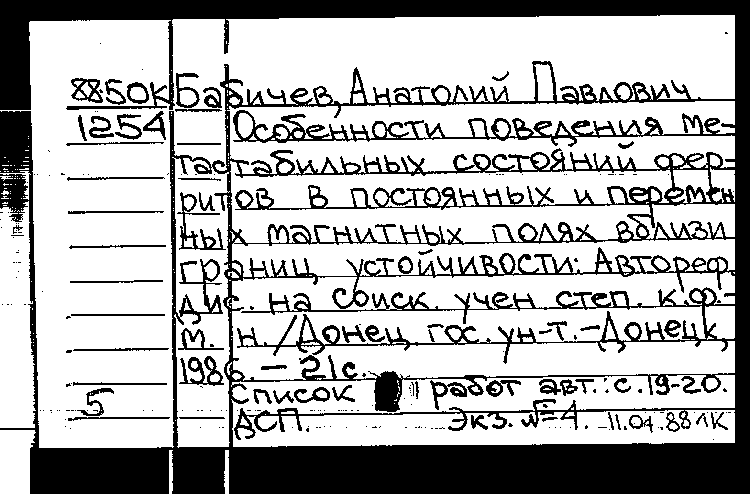 88.50К Бабичев, Анатолий Павлович.
1254 Особенности поведения ме-
тастабильных состояний фер-
ритов в постоянных и перемен
ных магнитных полях вблизи
границ устойчивости: Автореф.
дис. на соиск. учен степ. к.ф.-
м. н. /Донец. гос. ун-т.-Донецк,
1986. - 21с.
Список работ авт.: с.19-20.
5 ДСП. Экз. №4. 11.01.88 ЛК